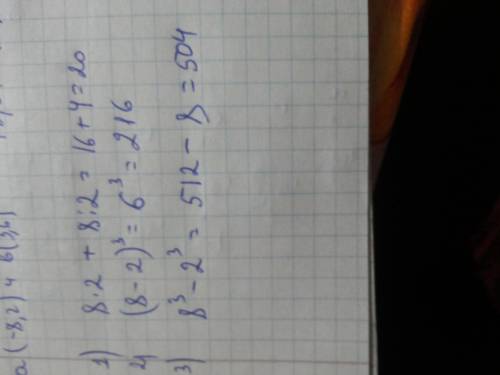 a (-8,2) и b(3,6)
1) 8·2 + 8:2 = 16+4=20
2) (8-2)³ = 6³ = 216
3) 8³-2³ = 512 - 8 = 504